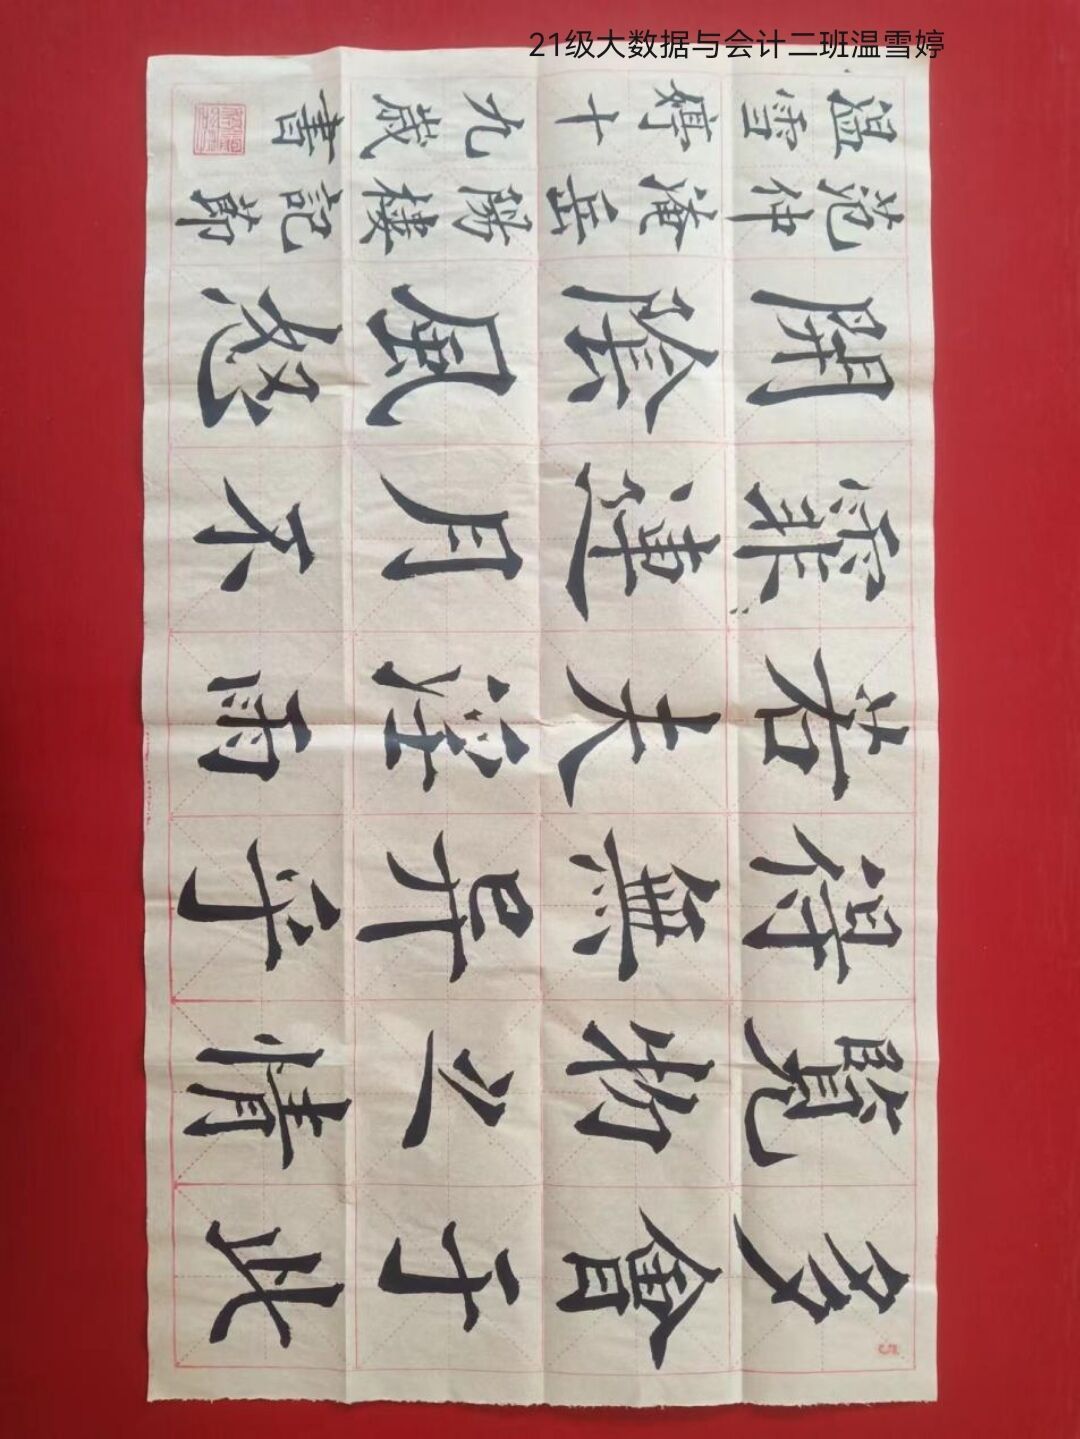 21级大数据与会计二班温雪婷
多會于此
覽物之情
得無异乎
若夫淫雨
霏連月不
開陰風怒
范仲淹岳陽樓記節
温雪婷十九歲書